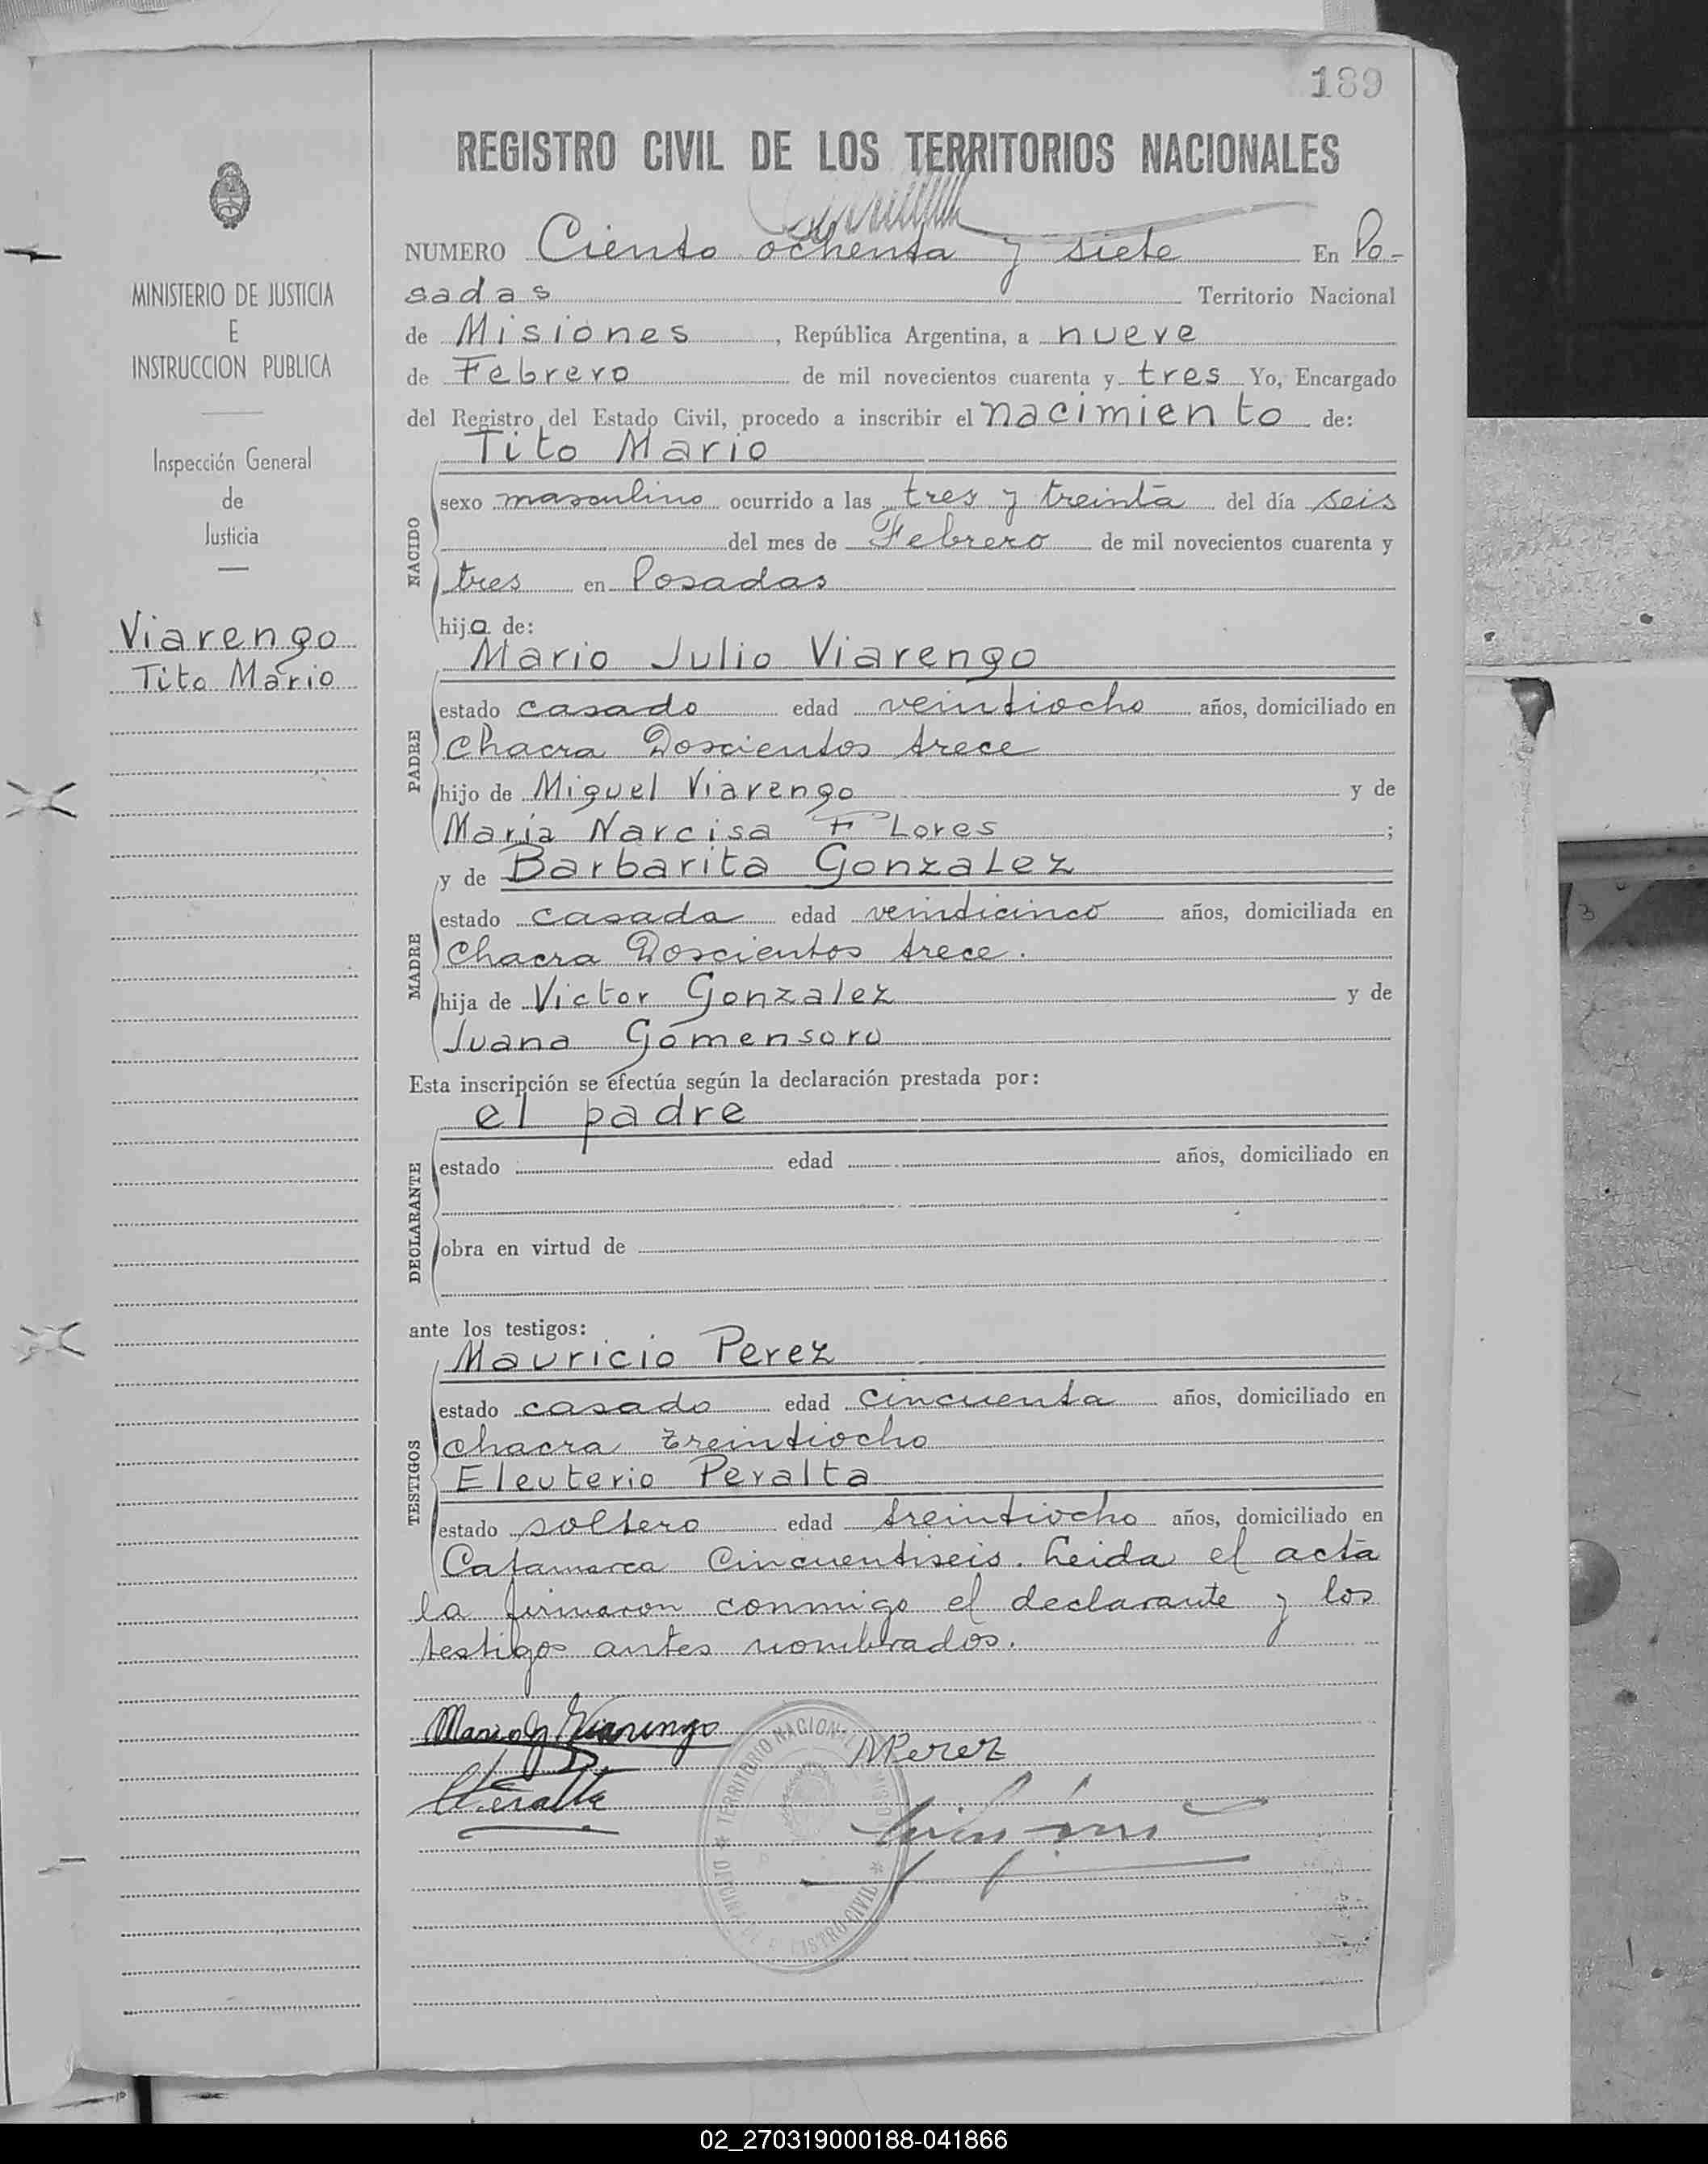 189
REGISTRO CIVIL DE LOS TERRITORIOS NACIONALES
NUMERO Ciento ochenta y siete En Po-
sadas Territorio Nacional
de Misiones, República Argentina, a nueve
de Febrero de mil novecientos cuarenta y tres Yo, Encargado
del Registro del Estado Civil, procedo a inscribir el nacimiento de:
Tito Mario
NACIDO
sexo masculino ocurrido a las tres y treinta del día seis
del mes de Febrero de mil novecientos cuarenta y
tres en Posadas
hijo de:
Mario Julio Viarengo
PADRE
estado casado edad veintiocho años, domiciliado en
Chacra Doscientos trece
hijo de Miguel Viarengo y de
María Narcisa Flores;
y de Barbarita Gonzalez
MADRE
estado casada edad veinticinco años, domiciliada en
Chacra Doscientos trece.
hija de Victor Gonzalez y de
Juana Gomensoro
Esta inscripción se efectúa según la declaración prestada por:
el padre
DECLARANTE
estado edad años, domiciliado en
obra en virtud de
ante los testigos:
Mauricio Perez
TESTIGOS
estado casado edad cincuenta años, domiciliado en
Chacra treintiocho
Eleuterio Peralta
estado soltero edad treintiocho años, domiciliado en
Catamarca Cincuentiseis. Leida el acta
la firmaron conmigo el declarante y los
testigos antes nombrados.
Mario J. Viarengo
MPerez
EPeralta
TERRITORIO NACIONAL
MINISTERIO DE JUSTICIA
E
INSTRUCCION PUBLICA
Inspección General
de
Justicia
Viarengo
Tito Mario
3
02_270319000188-041866